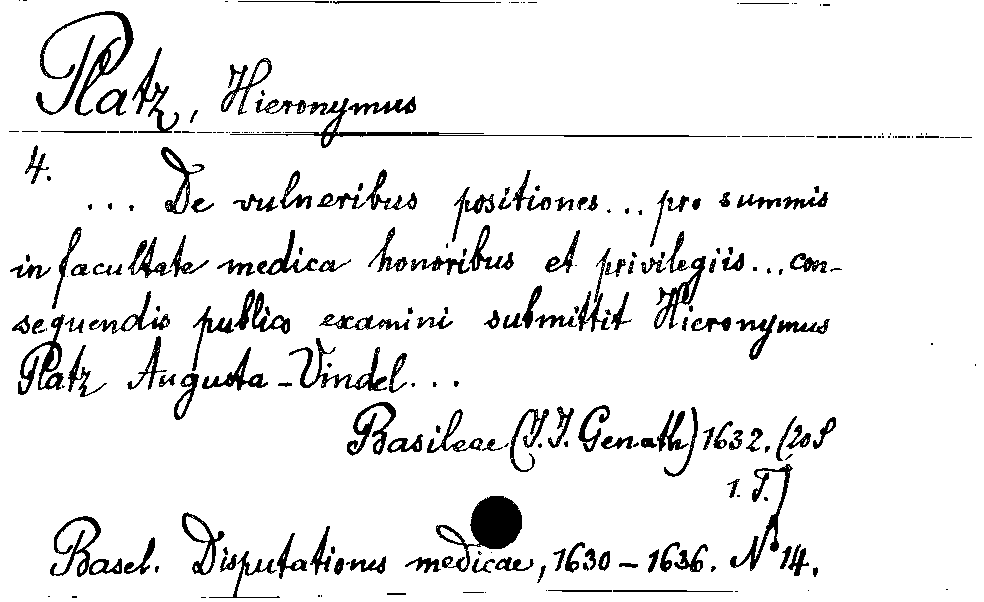 Platz, Hieronymus
4.
... De vulneribus positiones... pro summis
in facultate medica honoribus et privilegiis... con-
sequendis publico examini submittit Hieronymus
Platz Augusta-Vindel...
Basileae (J.J. Genath) 1632. (20 S
1. T.)
Basel. Disputationes medicae, 1630 – 1636. No 14.